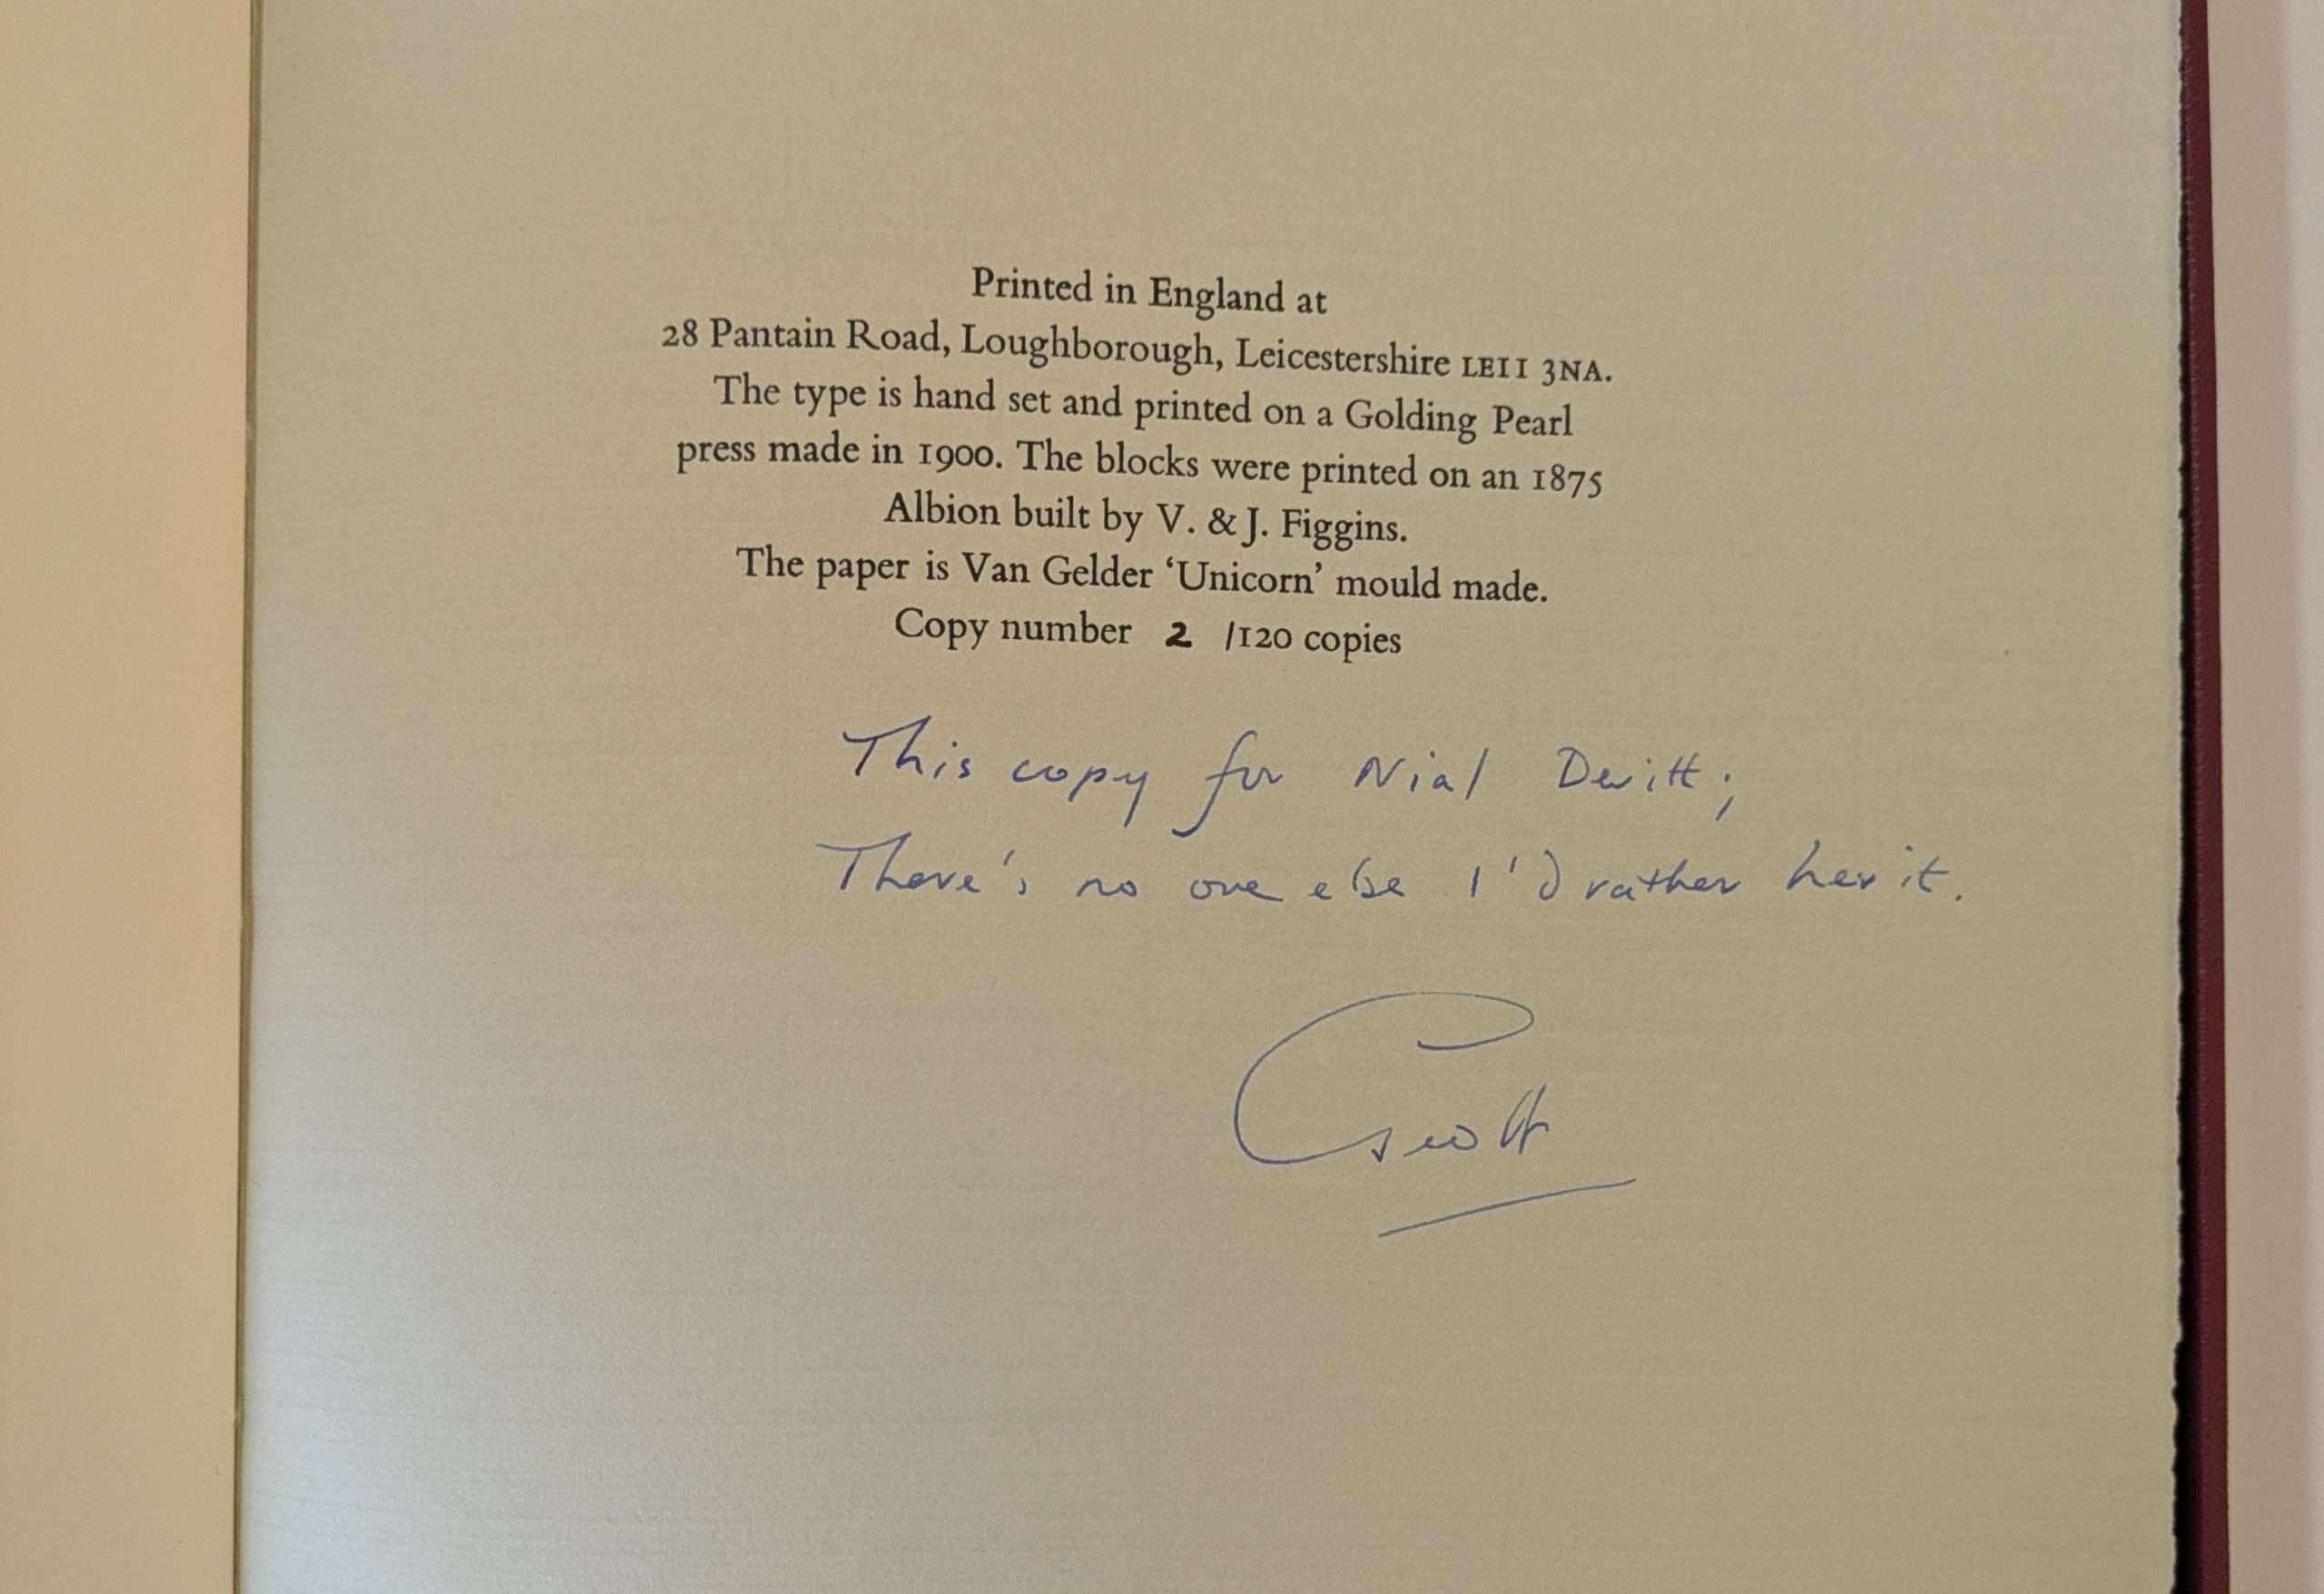 Printed in England at
28 Pantain Road, Loughborough, Leicestershire LE11 3NA.
The type is hand set and printed on a Golding Pearl
press made in 1900. The blocks were printed on an 1875
Albion built by V. & J. Figgins.
The paper is Van Gelder ‘Unicorn’ mould made.
Copy number 2 /120 copies
This copy for Nial Devitt;
There's no one else I'd rather have it.